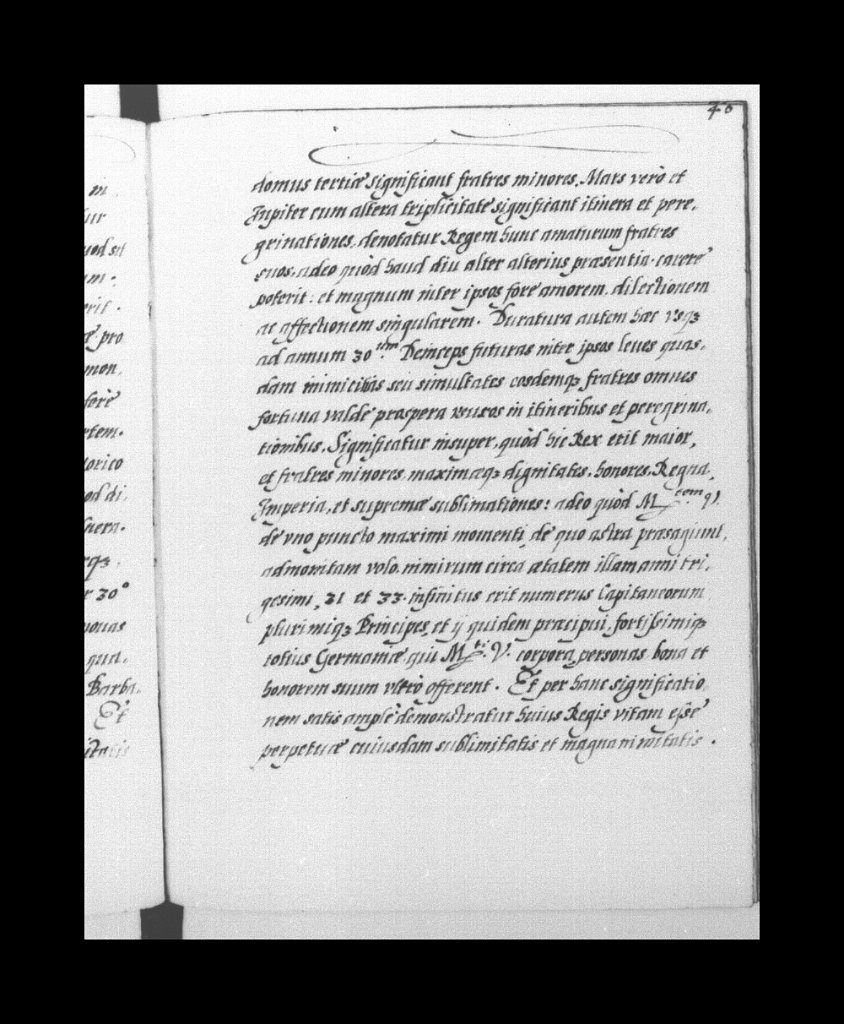 40
in
tur
uod sit
um.
erit.
æ pro
mon,
ferè
rtem.
torico
od di,
nera.
rq;.
r 30°
nouas
qua.
Barba.
Et
itatis
domus tertiæ significant fratres minores, Mars verò et
Jupiter cum altera triplicitate significant itinera et pere,
grinationes, denotatur Regem hunc amaturum fratres
suos, adeo quòd haud diu alter alterius præsentia carere
poterit: et magnum inter ipsos fore amorem, dilectionem
ac affectionem singularem. Duratura autem hæc vsq;
ad annum 30.um Deinceps futuras inter ipsos leues quas,
dam inimicitias seu simultates eosdemq; fratres omnes
fortuna valde prospera vsuros in itineribus et peregrina,
tionibus. Significatur insuper, quòd hic Rex erit maior,
et fratres minores, maximæq; dignitates, honores, Regna,
Imperia, et supremæ sublimationes: adeo quòd M.tem V.
de vno puncto maximi momenti, de quo astra præsagiunt,
admonitam volo, nimirum circa ætatem illam anni tri,
gesimi, 31 et 33. infinitus erit numerus Capitaneorum
plurimiq; Principes, et ij quidem præcipui, fortissimiq;
totius Germaniæ qui M.ti V. corpora, personas, bona et
honorem suum vltrò offerent. Et per hanc significatio,
nem satis amplè demonstratur huius Regis vitam esse
perpetuæ cuiusdam sublimitatis et magnanimitatis.